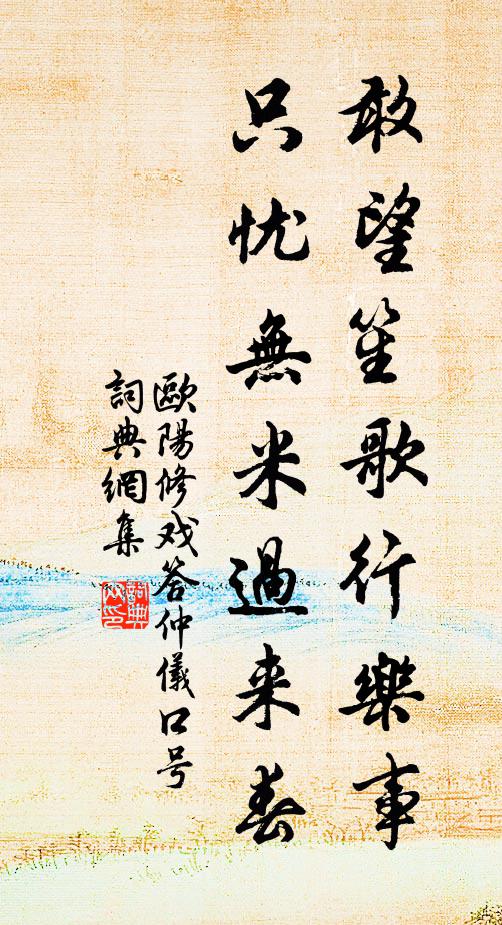 敢望笙歌行樂事
只忧無米過来春
歐陽修戏答仲儀口号
詞典網集